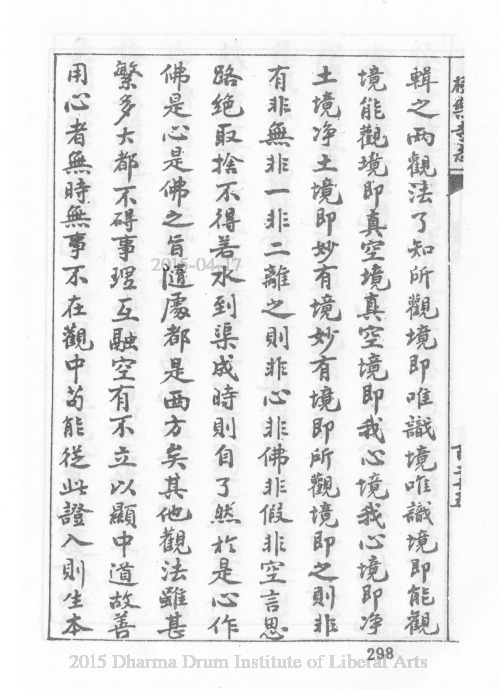 輯之兩觀法了知所觀境即唯識境唯識境即能觀
境能觀境即真空境真空境即我心境我心境即淨
土境淨土境即妙有境妙有境即所觀境即之則非
有非無非一非二離之則非心非佛非假非空言思
路絕取捨不得若水到渠成時則自了然於是心作
佛是心是佛之旨隨處都是西方矣其他觀法雖甚
繁多大都不碍事理互融空有不立以顯中道故善
用心者無時無事不在觀中苟能從此證入則生本
298
2015-04-17
2015 Dharma Drum Institute of Liberal Arts